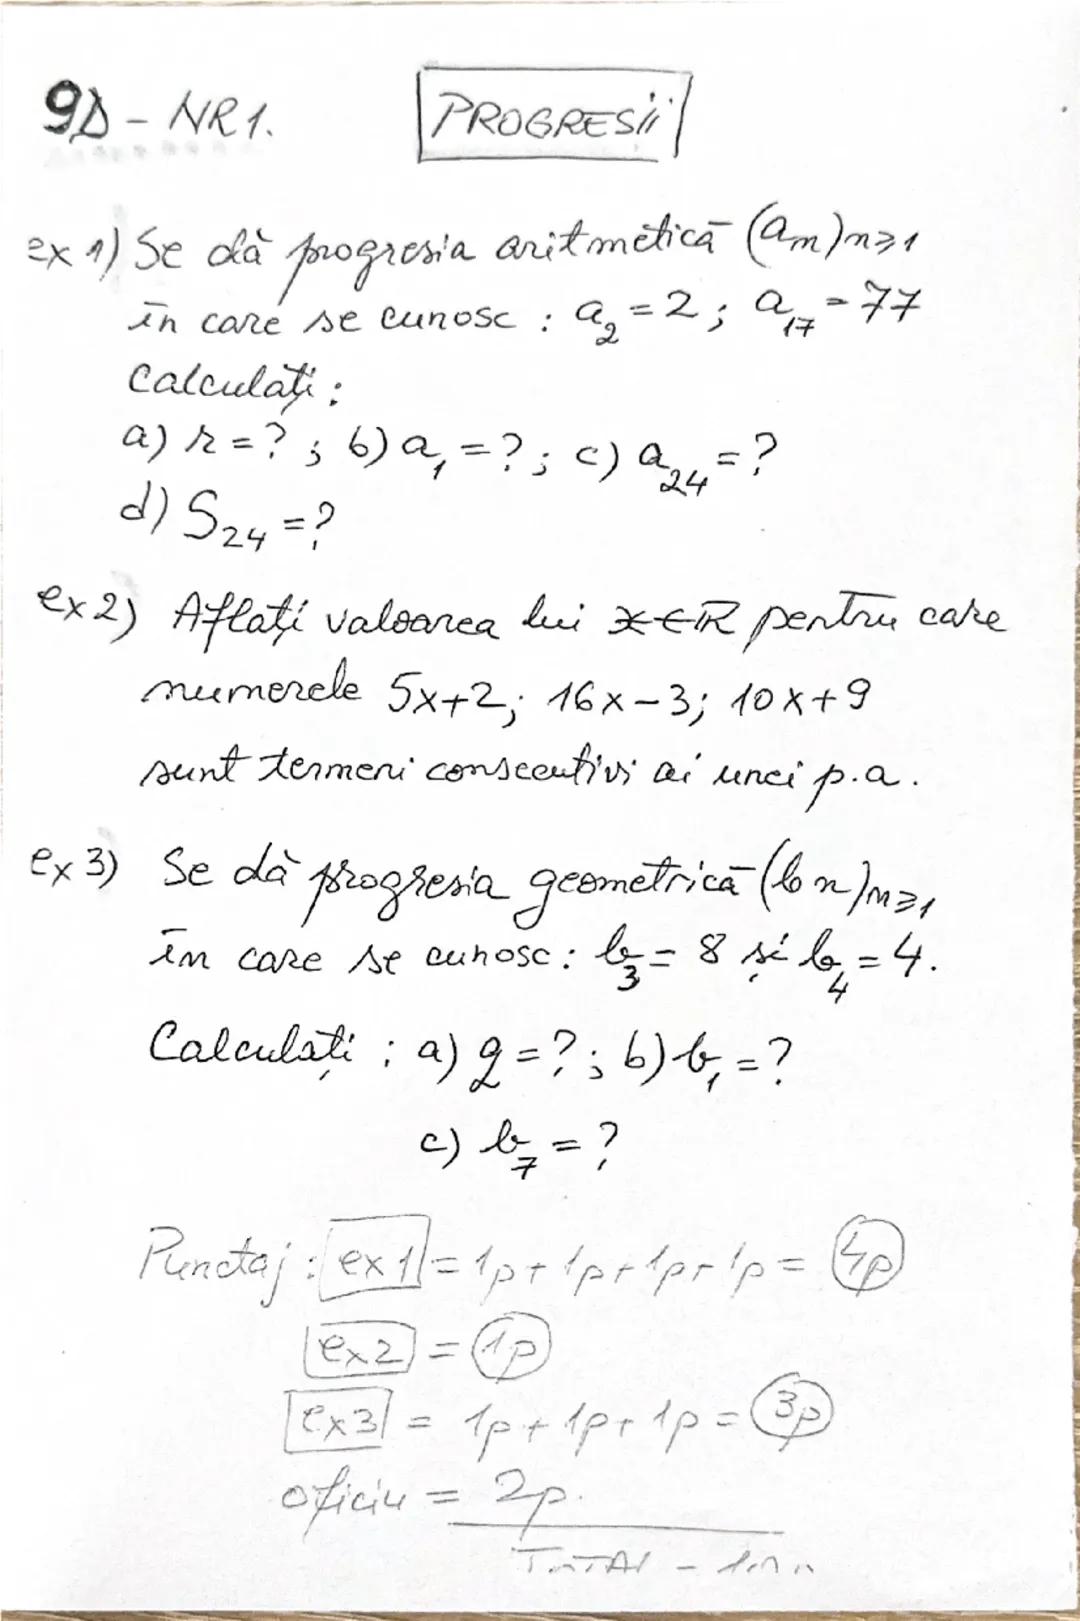 9D - NR1. PROGRESII
ex 1) Se dă progresia aritmetică (an)n≥1
în care se cunosc : a2 = 2 ; a17 = 77
Calculați :
a) r = ? ; b) a1 = ? ; c) a24 = ?
d) S24 = ?
ex 2) Aflați valoarea lui x∈R pentru care
numerele 5x+2; 16x-3; 10x+9
sunt termeni consecutivi ai unei p.a.
ex 3) Se dă progresia geometrică (bn)n≥1
în care se cunosc : b3 = 8 și b4 = 4.
Calculați : a) q = ? ; b) b1 = ?
c) b7 = ?
Punctaj : ex 1 = 1p + 1p + 1p + 1p = 4p
ex2 = 1p
ex3 = 1p + 1p + 1p = 3p
oficiu = 2p.
TOTAL -